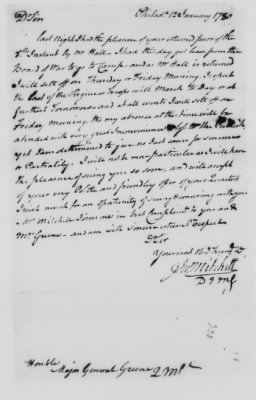 Philada. 12 January 1780
Dr Sir
Last Night I had the pleasure of your esteemed favor of the
Instant by Mr Hall. I had this day got leave from the
Board of War to go to Camp and as Mr Hall is returned
I will sett off on Thursday or Friday Morning. I expect
the last of the Virginia Troops will March to Day or at
furthest Tomorrow and at all events I will sett off on
Friday Morning, tho my absence at this time will be
attended with very great Inconvenience
yet I am determined to give no Just cause for censure
or Partiality. I will not be more particular as I will have
the pleasure of seeing you so soon, and will accept
of your very Polite and friendly offer of your Quarters
I wish much for an opertunity of seeing & conversing with you
Mrs Mitchell Joins me in best Compliments to you and
Mrs Greene. and am with sincere esteem & respect
Dr Sir
Your most Obdt
Jno Mitchell
D Q M G
Honble
Major General Greene Q M G